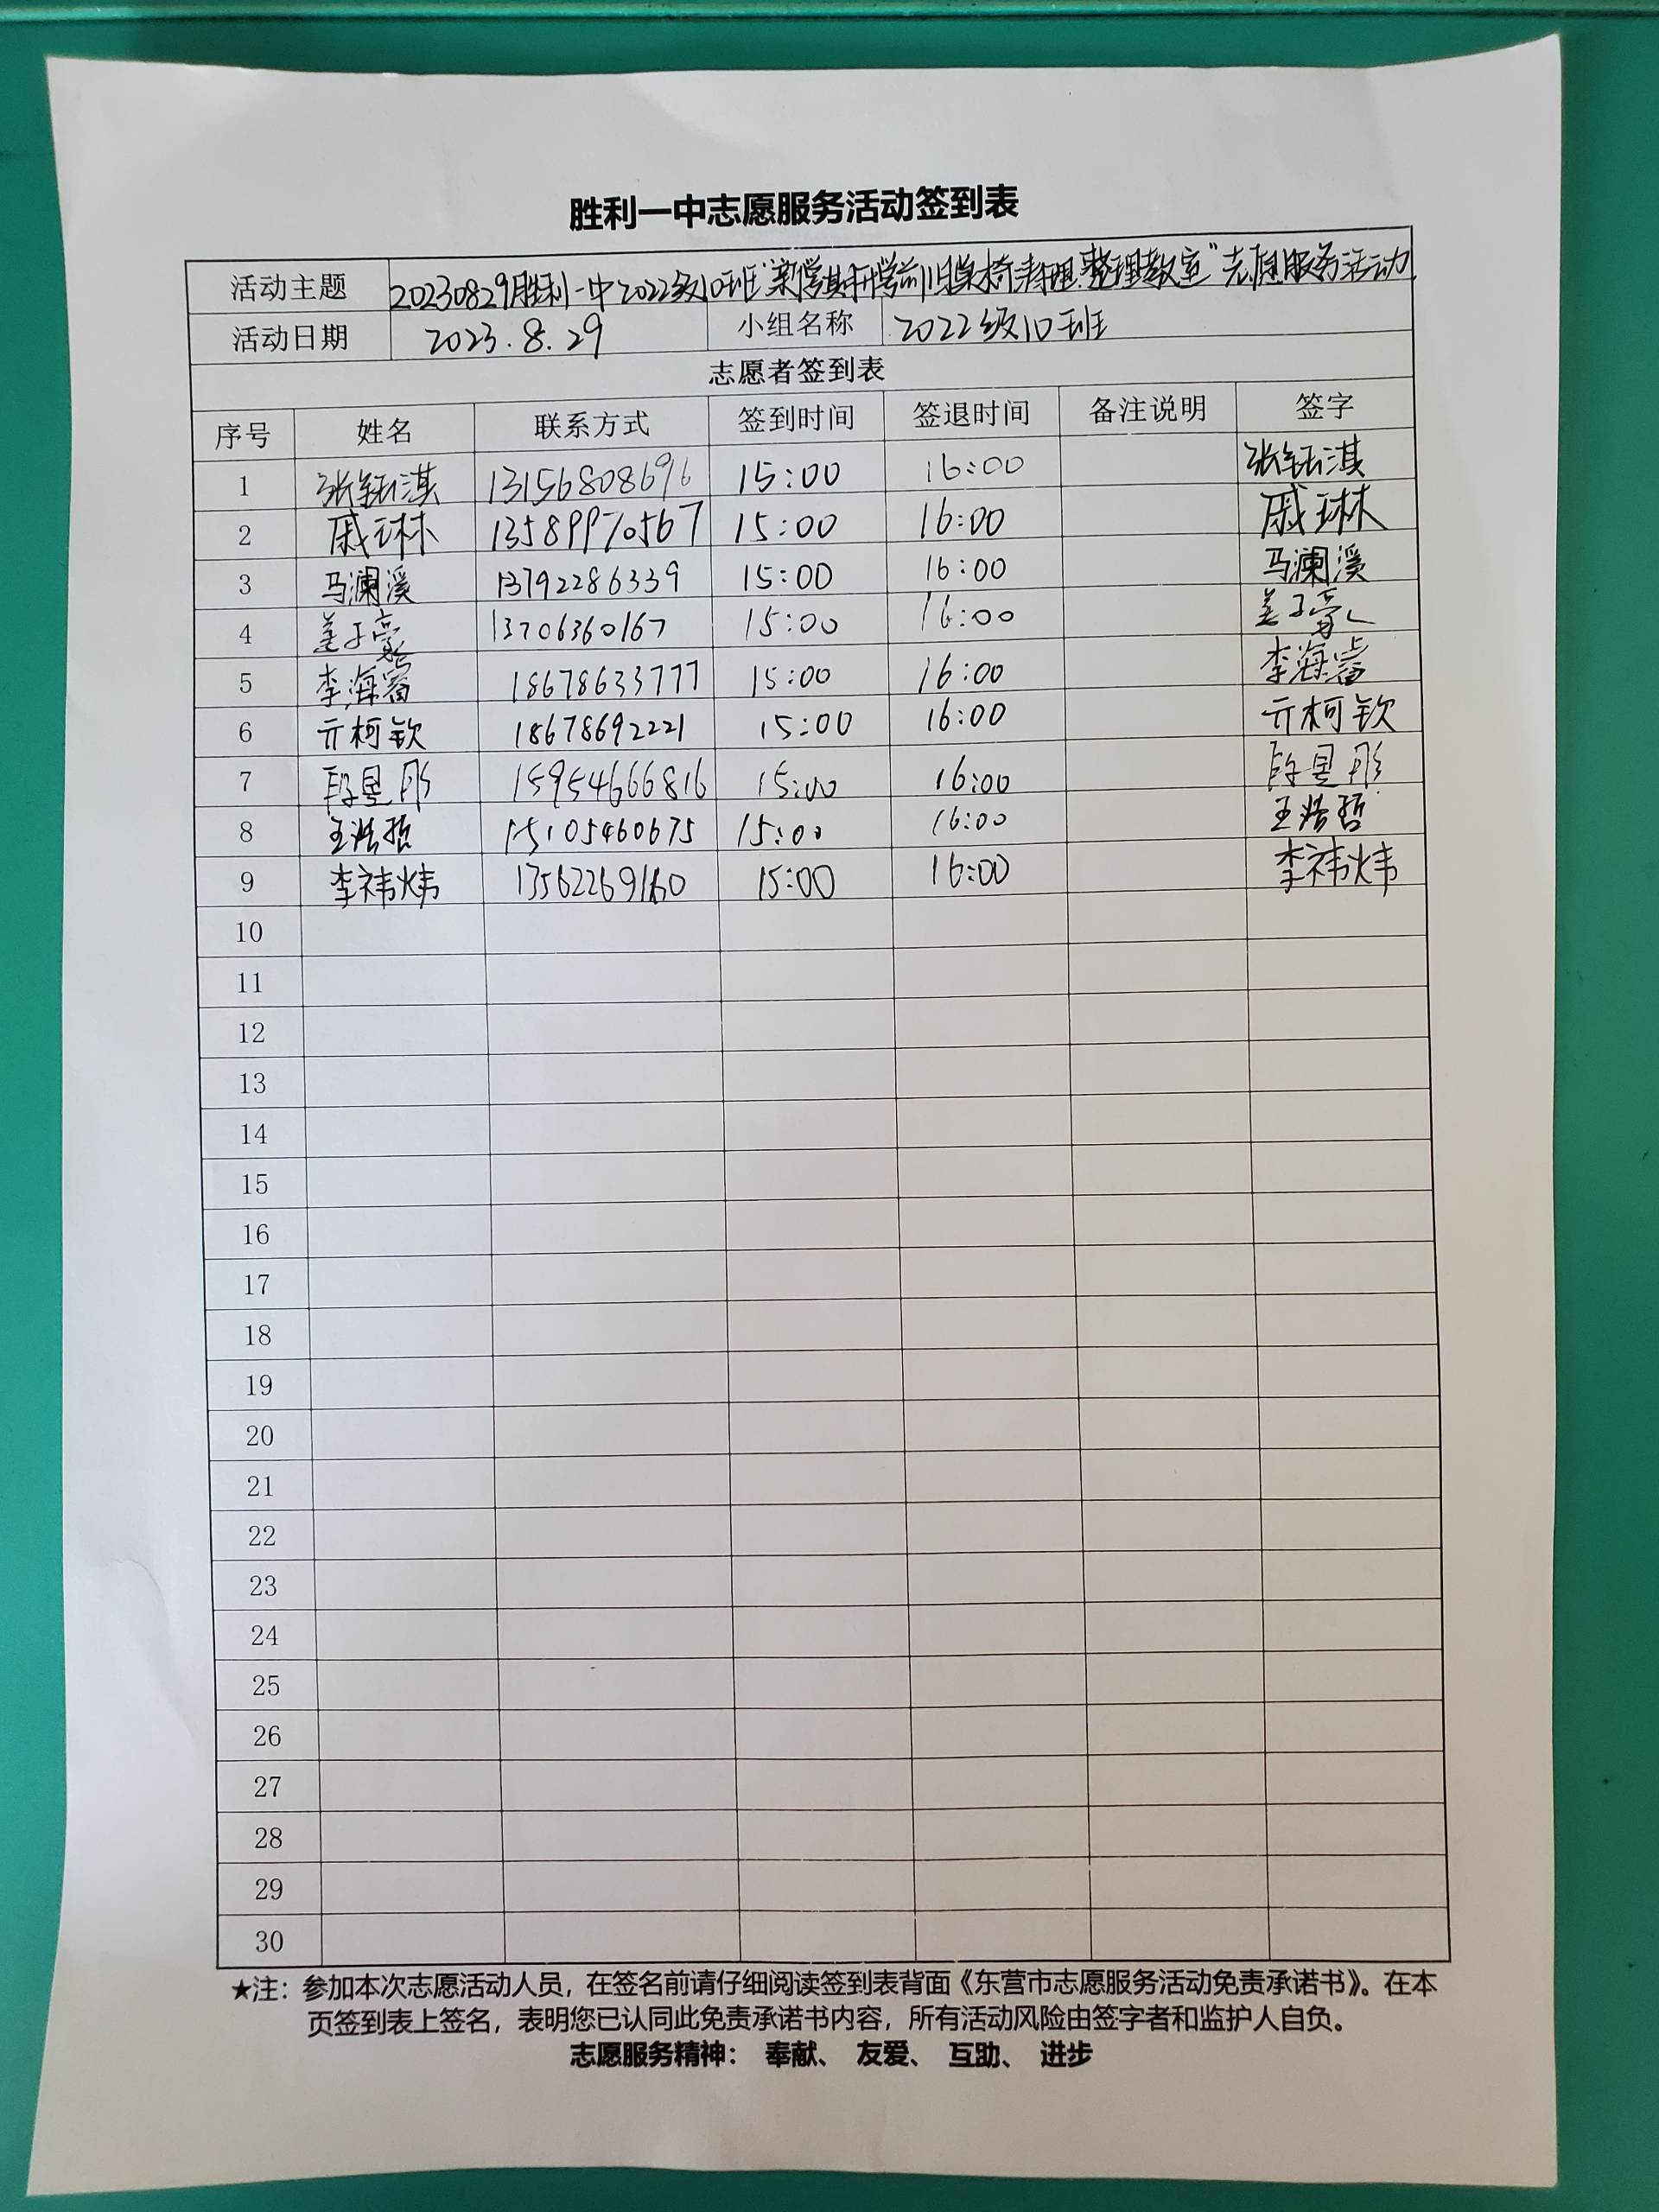 胜利一中志愿服务活动签到表
活动主题 20230829胜利一中2022级10班“新学期开学前旧桌椅清理.整理教室”志愿服务活动
活动日期 2023.8.29 小组名称 2022级10班
志愿者签到表
序号 姓名 联系方式 签到时间 签退时间 备注说明 签字
1 张钰淇 13156808696 15:00 16:00 张钰淇
2 戚琳 13589970567 15:00 16:00 戚琳
3 马澜溪 13792286339 15:00 16:00 马澜溪
4 姜子豪 13706360167 15:00 16:00 姜子豪
5 李海睿 18678633777 15:00 16:00 李海睿
6 亓柯钦 18678692221 15:00 16:00 亓柯钦
7 段昱彤 15954666816 15:00 16:00 段昱彤
8 王浩哲 15105460675 15:00 16:00 王浩哲
9 李祎炜 15:00 16:00 李祎炜
10
11
12
13
14
15
16
17
18
19
20
21
22
23
24
25
26
27
28
29
30
★注：参加本次志愿活动人员，在签名前请仔细阅读签到表背面《东营市志愿服务活动免责承诺书》。在本
页签到表上签名，表明您已认同此免责承诺书内容，所有活动风险由签字者和监护人自负。
志愿服务精神： 奉献、 友爱、 互助、 进步